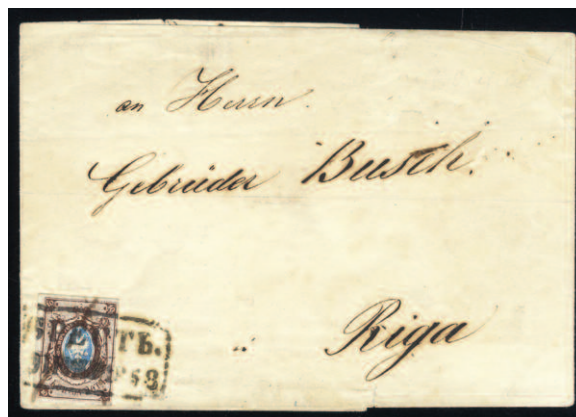 an Herrn.
Gebrüder Busch.
Riga